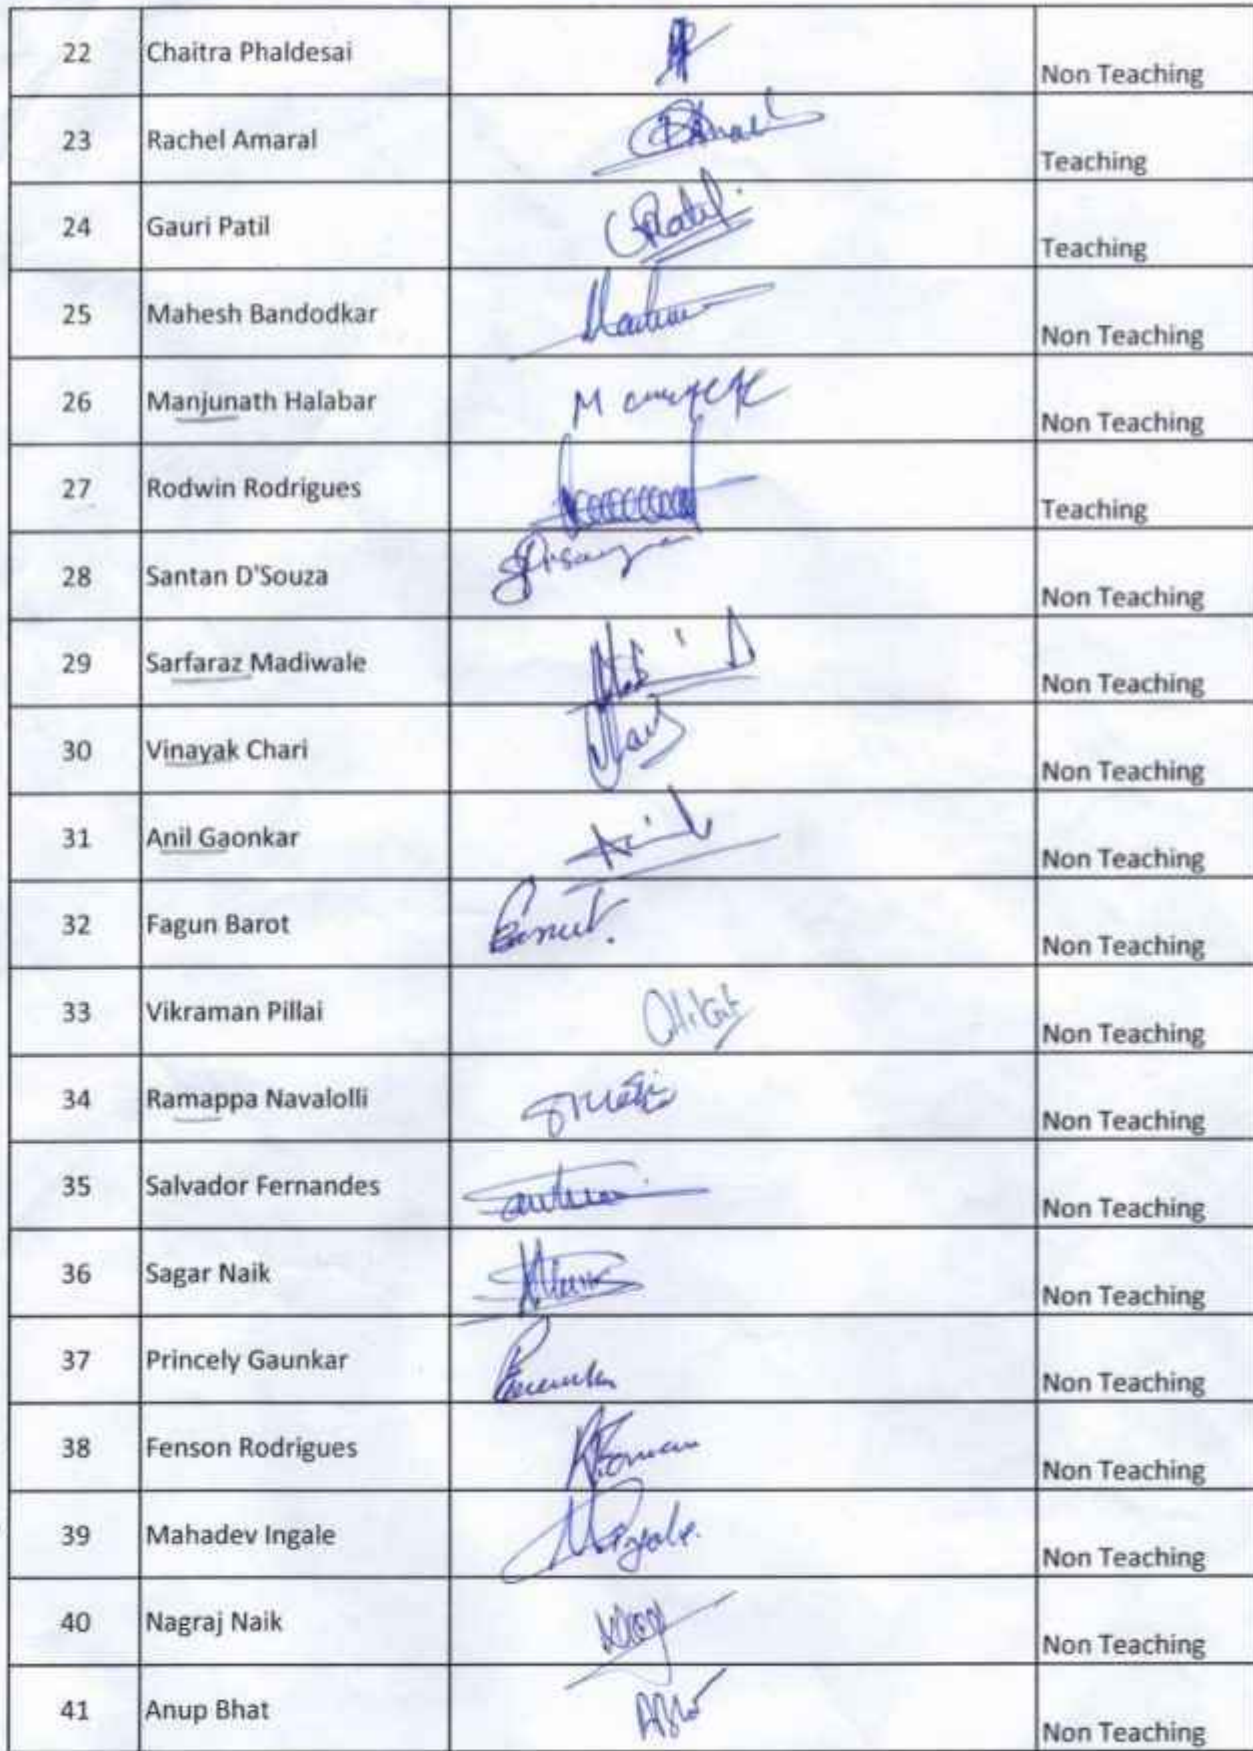 22 Chaitra Phaldesai Non Teaching
23 Rachel Amaral Teaching
24 Gauri Patil Teaching
25 Mahesh Bandodkar Non Teaching
26 Manjunath Halabar Non Teaching
27 Rodwin Rodrigues Teaching
28 Santan D'Souza Non Teaching
29 Sarfaraz Madiwale Non Teaching
30 Vinayak Chari Non Teaching
31 Anil Gaonkar Non Teaching
32 Fagun Barot Non Teaching
33 Vikraman Pillai Non Teaching
34 Ramappa Navalolli Non Teaching
35 Salvador Fernandes Non Teaching
36 Sagar Naik Non Teaching
37 Princely Gaunkar Non Teaching
38 Fenson Rodrigues Non Teaching
39 Mahadev Ingale Non Teaching
40 Nagraj Naik Non Teaching
41 Anup Bhat Non Teaching